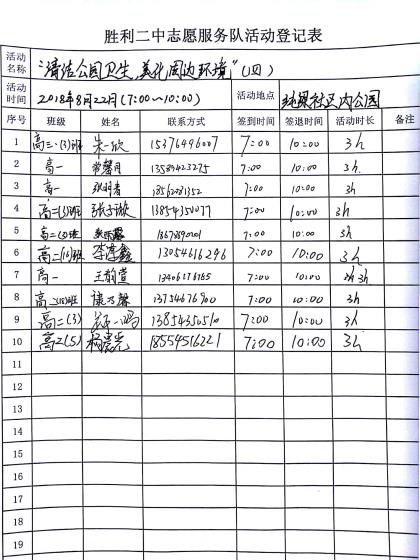 胜利二中志愿服务队活动登记表
活动名称 "清洁公园卫生,美化周边环境"(四)
活动时间 2018年8月22日(7:00~10:00) 活动地点 社区内公园
序号 班级 姓名 联系方式 签到时间 签退时间 活动时长 备注
1 高三·(3)班 朱一欣 15376496007 7:00 10:00 3h
2 高一 常馨月 13589423275 7:00 10:00 3h
3 高一 7:00 10:00 3h
4 高二(3)班 13854350077 7:00 10:00 3h
5 高二 班 7:00 10:00 3h
6 高二(16)班 李 鑫 13054616296 7:00 10:00 3h
7 高一 王韵萱 7:00 10:00 3h
8 高二 班 13754676900 7:00 10:00 3h
9 高二(3) 一鸣 13854350510 7:00 10:00 3h
10 高2(5) 18554516221 7:00 10:00 3h
11
12
13
14
15
16
17
18
19